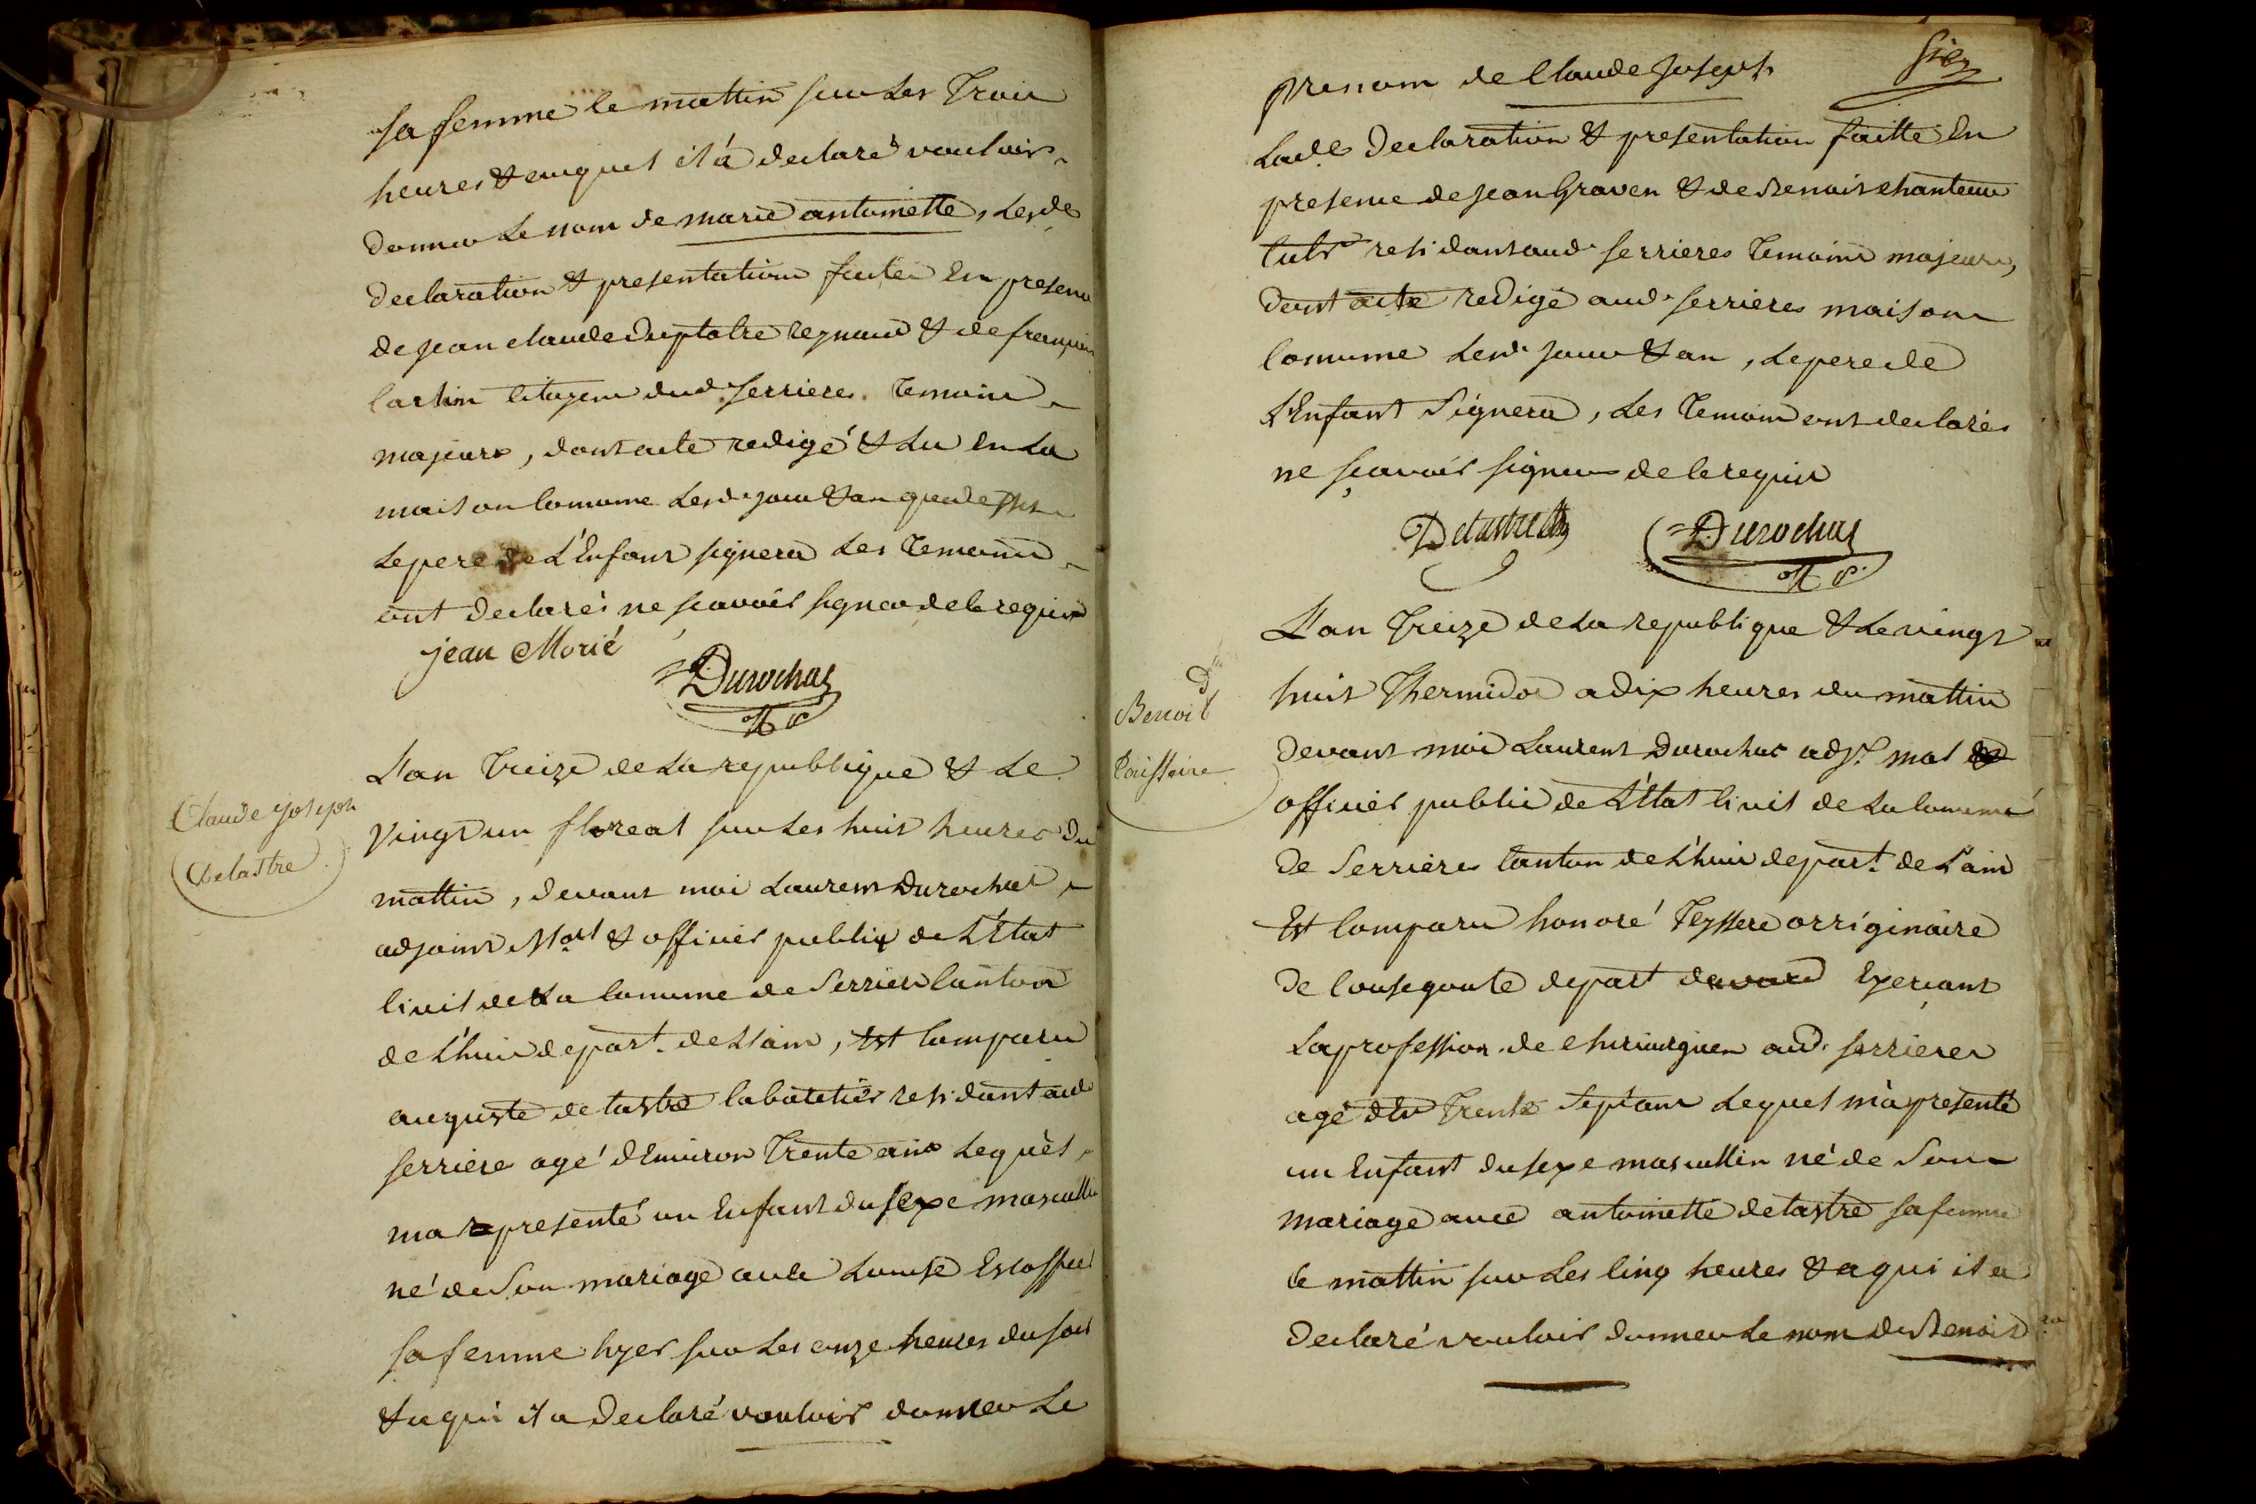 sa femme le mattin sur les trois
heures & auquel il a declaré vouloir
donner le nom de marie antoinette, lesd.
declaration & presentation faites en presence
de jean claude Duplatre reynaud & de françois
citoyens dud. serrieres temoins
majeurs, dont acte redigé & lu en la
maison comune lesd. jour & an que dessus
le pere de l'Enfant signera les temoins
ont declarés ne sçavoir signer de ce requis
jean Morié
Durochas
Claude joseph
Delastre
L'an treize de la republique & le
vingt un floreal sur les huit heures du
mattin, devant moi Laurent Durochas
adjoint Mal & officier public de L'Etat
civil de la comune de Serriere canton
de Lhuis depart. de L'ain, Est comparu
auguste delastre cabaretier residant aud
serriere agé d'Environ trente ans lequel
ma representé un Enfant du sexe masculin
né de son mariage avec Louise Escoffier
sa femme hyer sur les onze heures du soir
& a qui il a declaré vouloir donner le
prenom de Claude Joseph
Lade declaration & presentation faitte En
presence de jean Graven & de Benoit chanteur
cultr residants aud. serrieres temoins majeurs,
dont acte redigé aud. serrieres maison
comune lesd. jour & an, le pere de
L'Enfant signera, les temoins ont declarés
ne sçavoir signer de ce requis
Delastre Durochas
Benoit
L'an treize de la republique & le vingt
huit thermidor a dix heures du mattin
devant moi Laurent Durochas adjt. mal &
officier public de L'Etat civil de la comune
de Serrieres canton de Lhuis depart. de L'ain
Est comparu honoré Teyssere orriginaire
de depart Exerçant
la profession de chirurgien aud. serrieres
agé de trente sept ans lequel m'a presenté
un Enfant du sexe masculin né de son
mariage avec antoinette delastre sa femme
ce mattin sur les cinq heures & a qui il a
declaré vouloir donner le nom de Benoit